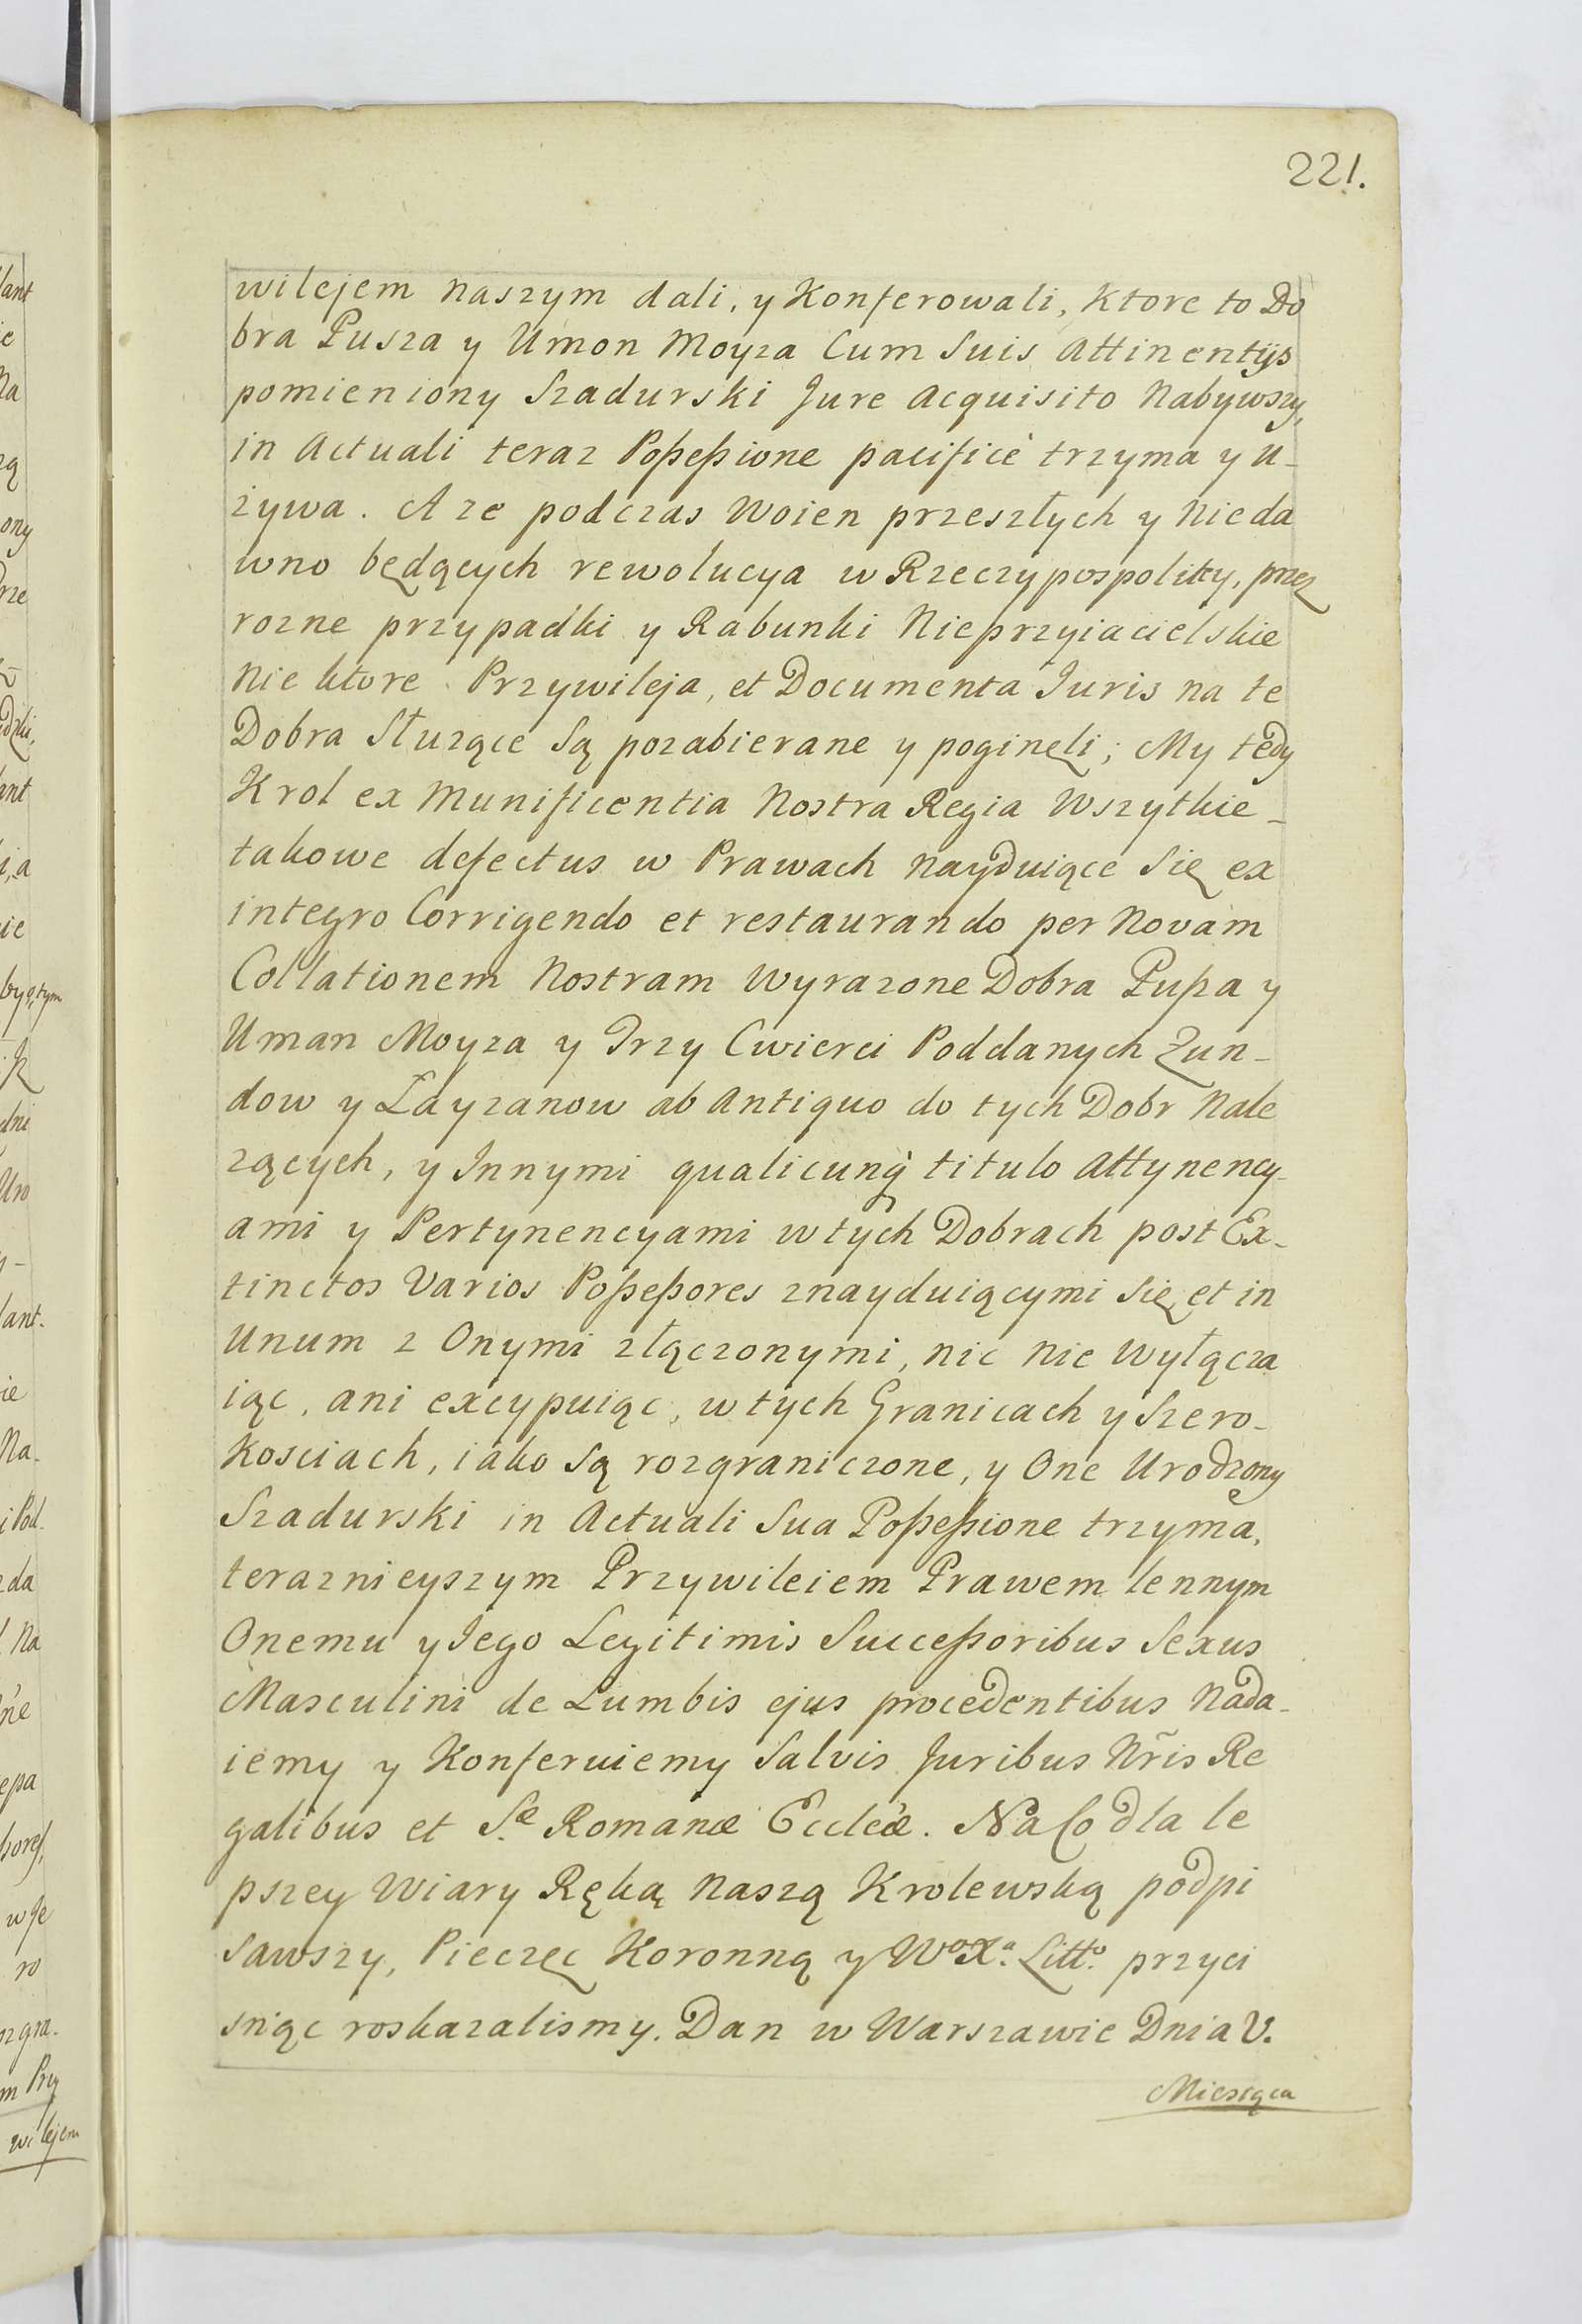 221.
wilejem naszym dali, y Konferowali, Ktore to Do
bra Pusza y Umon Moyza Cum Suis Attinentÿs
pomieniony Szadurski Jure Acquisito Nabywszy,
in Actuali teraz Poßeßione pacificè trzyma y u-
zywa. A ze podczas Woien przeszłych y Nieda
wno będących rewolucya w Rzeczypospolitey, przez
rozne przypadki y Rabunki Nieprzyiacielskie
Nie ktore Przywileja, et Documenta Juris na te
Dobra Służące Są pozabierane y poginęli; My tedy
Krol ex Munificentia Nostra Regia Wszytkie-
takowe defectus w Prawach nayduiące Się ex
integro Corrigendo et restaurando per Novam
Collationem Nostram Wyrazone Dobra Pußa y
Uman Moyza y Trzy Cwierci Poddanych Zun-
dow y Łayzanow ab Antiquo do tych Dobr Nale
zących, y Innymi qualicunq̀ titulo Attynency-
ami y Pertynencyami w tych Dobrach post Ex-
tinctos Varios Poßeßores znayduiącymi Się et in
Unum z Onymi złączonymi, nic nie Wyłącza
iąc, ani excypuiąc, w tych Granicach y Szero-
Kosciach, iako Są rozgraniczone, y One Urodzony
Szadurski in Actuali Sua Poßeßione trzyma,
teraznieyszym Przywileiem Prawem lennym
Onemu y Jego Legitimis Succeßoribus Sexus
Masculini de Lumbis ejus procedentibus Nada-
iemy y Konferuiemy Salvis Juribus Nr̃is Re
galibus et S.æ Romanæ Eccleæ. Na Co dla le
pszey Wiary Ręką Naszą Krolewską podpi
sawszy, Pieczęc Koronną y Wo Xa. Litto. przyci
sniąc roskazalismy. Dan w Warszawie Dnia V.
Miesiąca